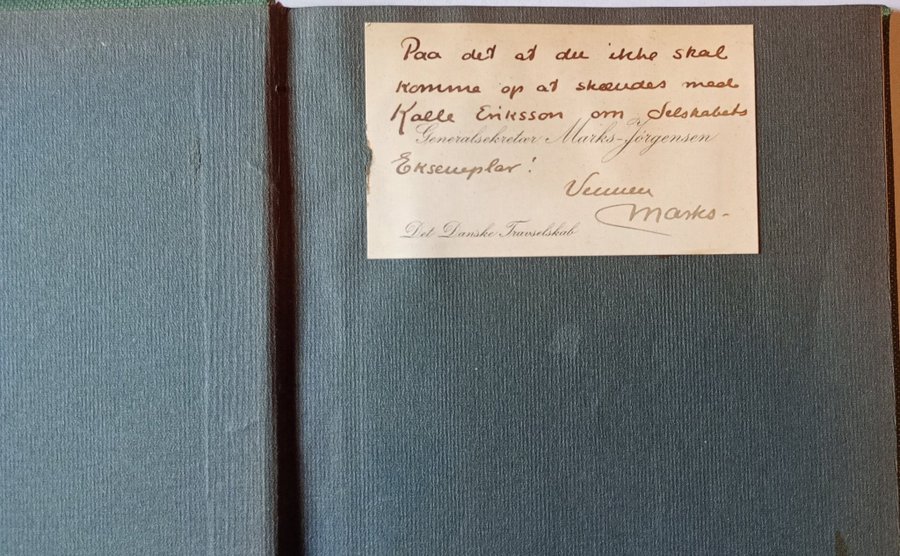 Paa det at du ikke skal
komme op at skændes med
Kalle Eriksson om Selskabets
Generalsekretær Marks-Jörgensen
Eksemplar!
Vennen
Marks-
Det Danske Travselskab